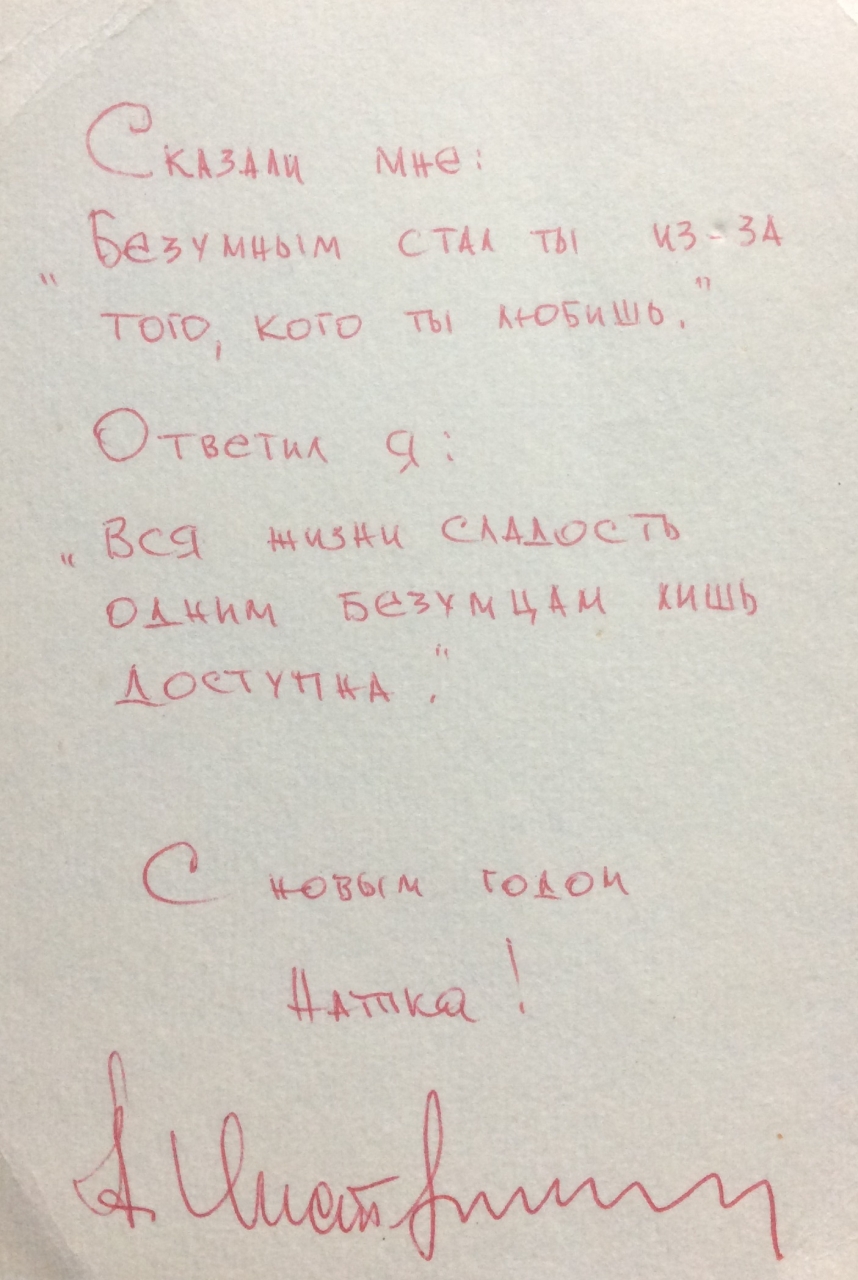 Сказали мне:
„Безумным стал ты из-за
того, кого ты любишь."
Ответил я:
„Вся жизни сладость
одним безумцам лишь
доступна."
С новым годом
Натка!